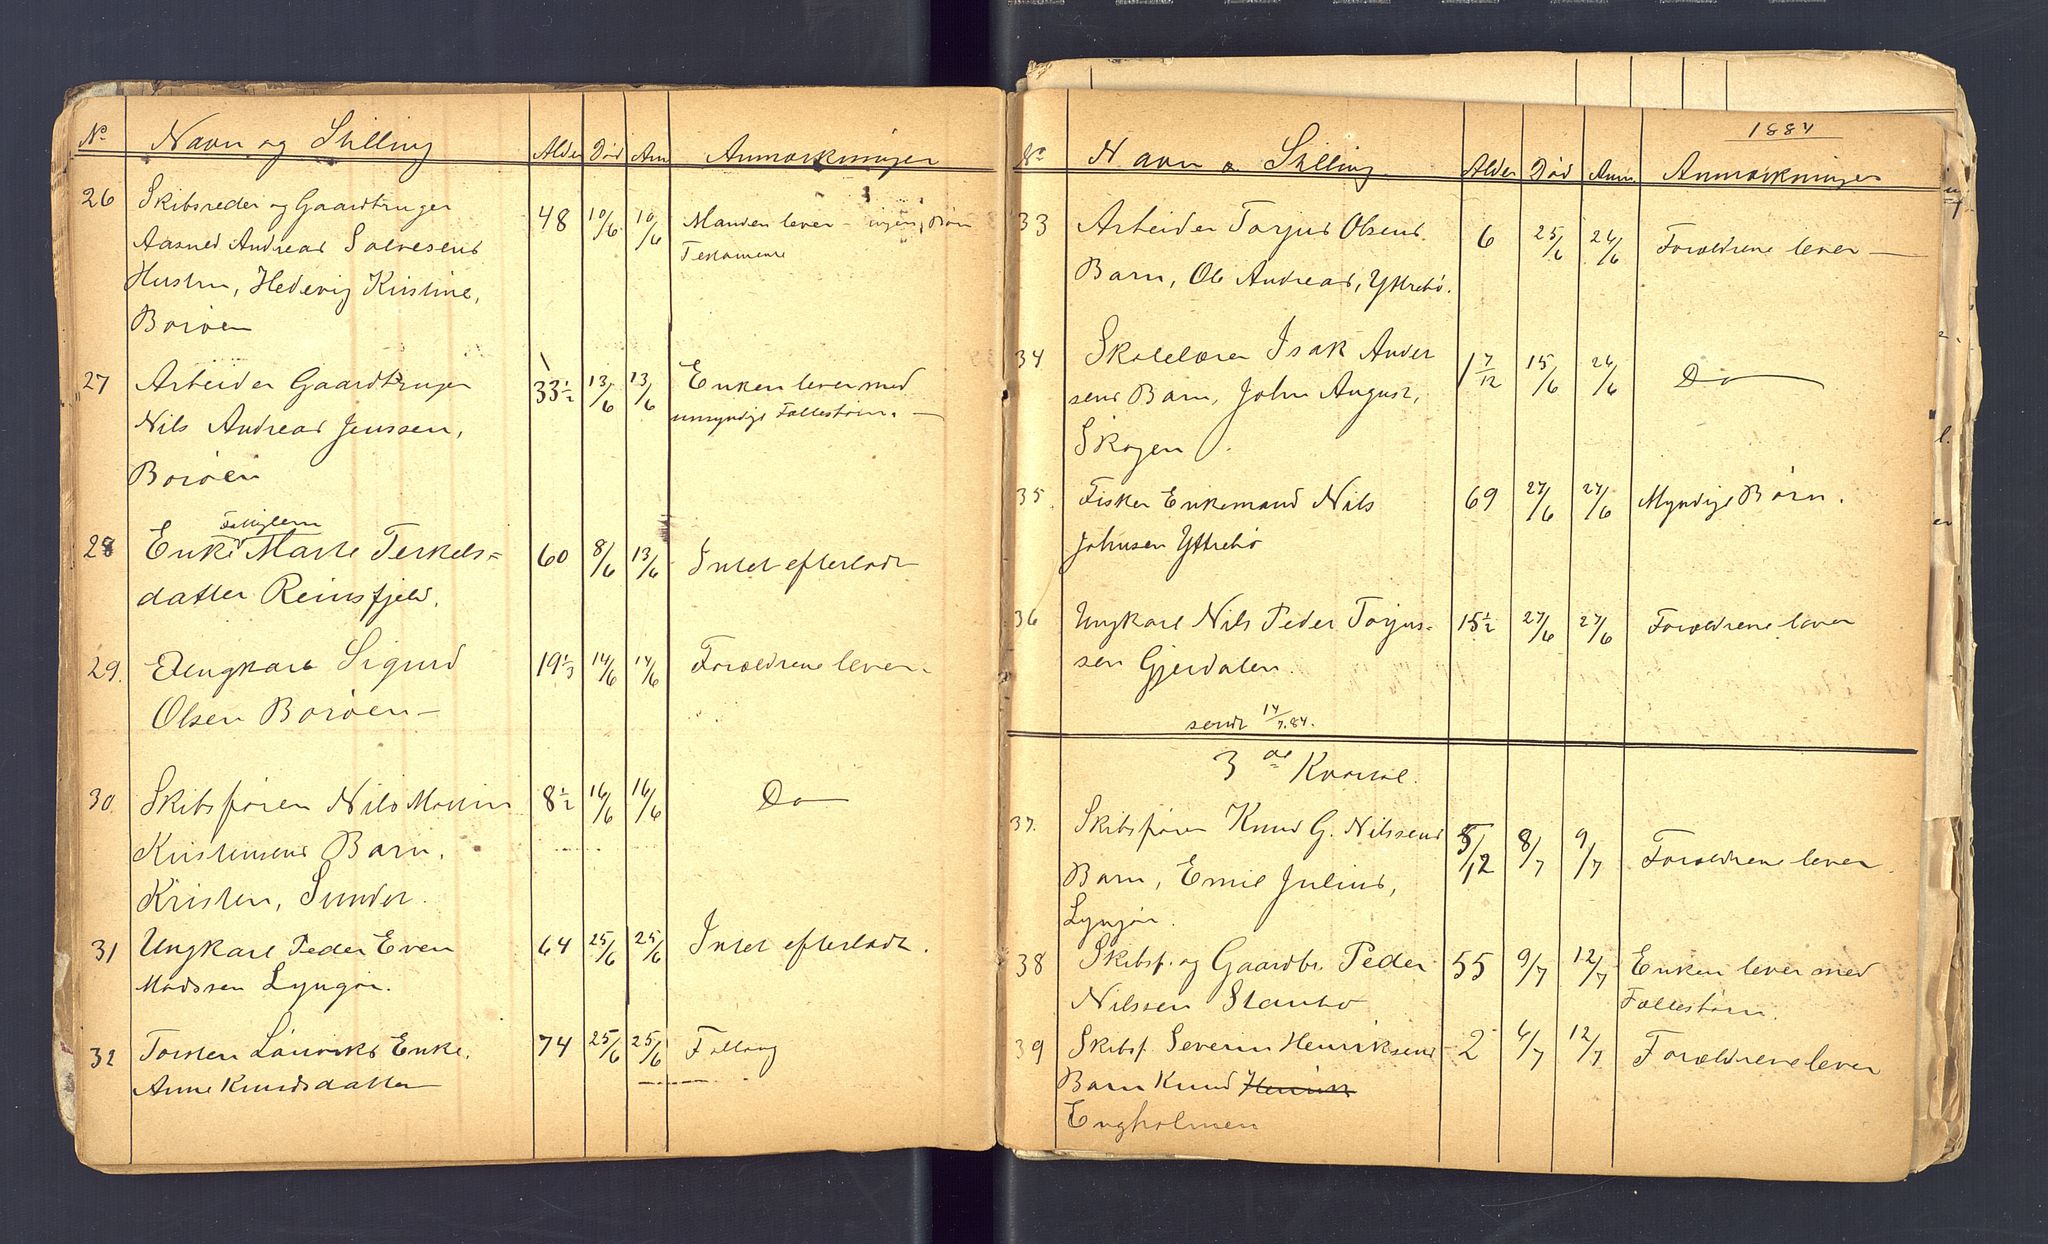 No Navn og Stilling Alder Död Anm Anmærkninger
26 Skibsreder og Gaardbruger
Aasned Andreas Salvesens
Hustru, Hedevig Kristine,
Borøen
48 10/6 10/6 Manden lever - ingen Børn
Testamente
27 Arbeider Gaardbruger
Nils Andreas Jenssen,
Borøen
33½ 13/6 13/6 Enken lever med
umyndige Fællesbørn. -
28 Enke Marte Terkels=
datter Reinsfjeld.
60 8/6 13/6 Intet efterladt
29. Ungkarl Sigurd
Olsen Borøen -
19⅓ 14/6 14/6 Forældrene lever.
30. Skibsfører Nils Martin
Kristensens Barn.
Kristen, Sundet.
8½ 16/6 16/6 Do
31 Ungkarl Peder Even
Madssen Lyngør.
64 25/6 25/6 Intet efterladt.
32 Torsten Lauviks Enke.
Anne Knudsdatter
74 25/6 25/6 Fattig
1884
No Navn o. Stilling Alder Död Anm Anmærkninger
33 Arbeider Torjus Olsens
Barn, Ole Andreas, Yttrebø.
6 25/6 26/6 Forældrene lever -
34 Skolelærer Isak Ander
sens Barn, John August,
Skogen.
1 7/12 15/6 26/6 Do
35. Fisker Enkemand Nils
Johnsen Yttrebø
69 27/6 27/6 Myndige Børn.
36 Ungkarl Nils Peder Torjus=
sen Gjerdalen.
15½ 27/6 27/6 Forældrene lever
sendt 14/7.84.
3de Kvartal.
37. Skibsfører Knud G. Nilssens
Barn, Emil Julius,
Lyngør.
5/12 8/7 9/7 Forældrene lever.
38 Skibsf. og Gaardbr. Peder
Nilssen Stanbo
55 9/7 12/7 Enken lever med
Fællesbørn.
39 Skibsf. Severin Henriksens
Barn Knud Henrik
Engholmen
2 4/7 12/7 Forældrene lever